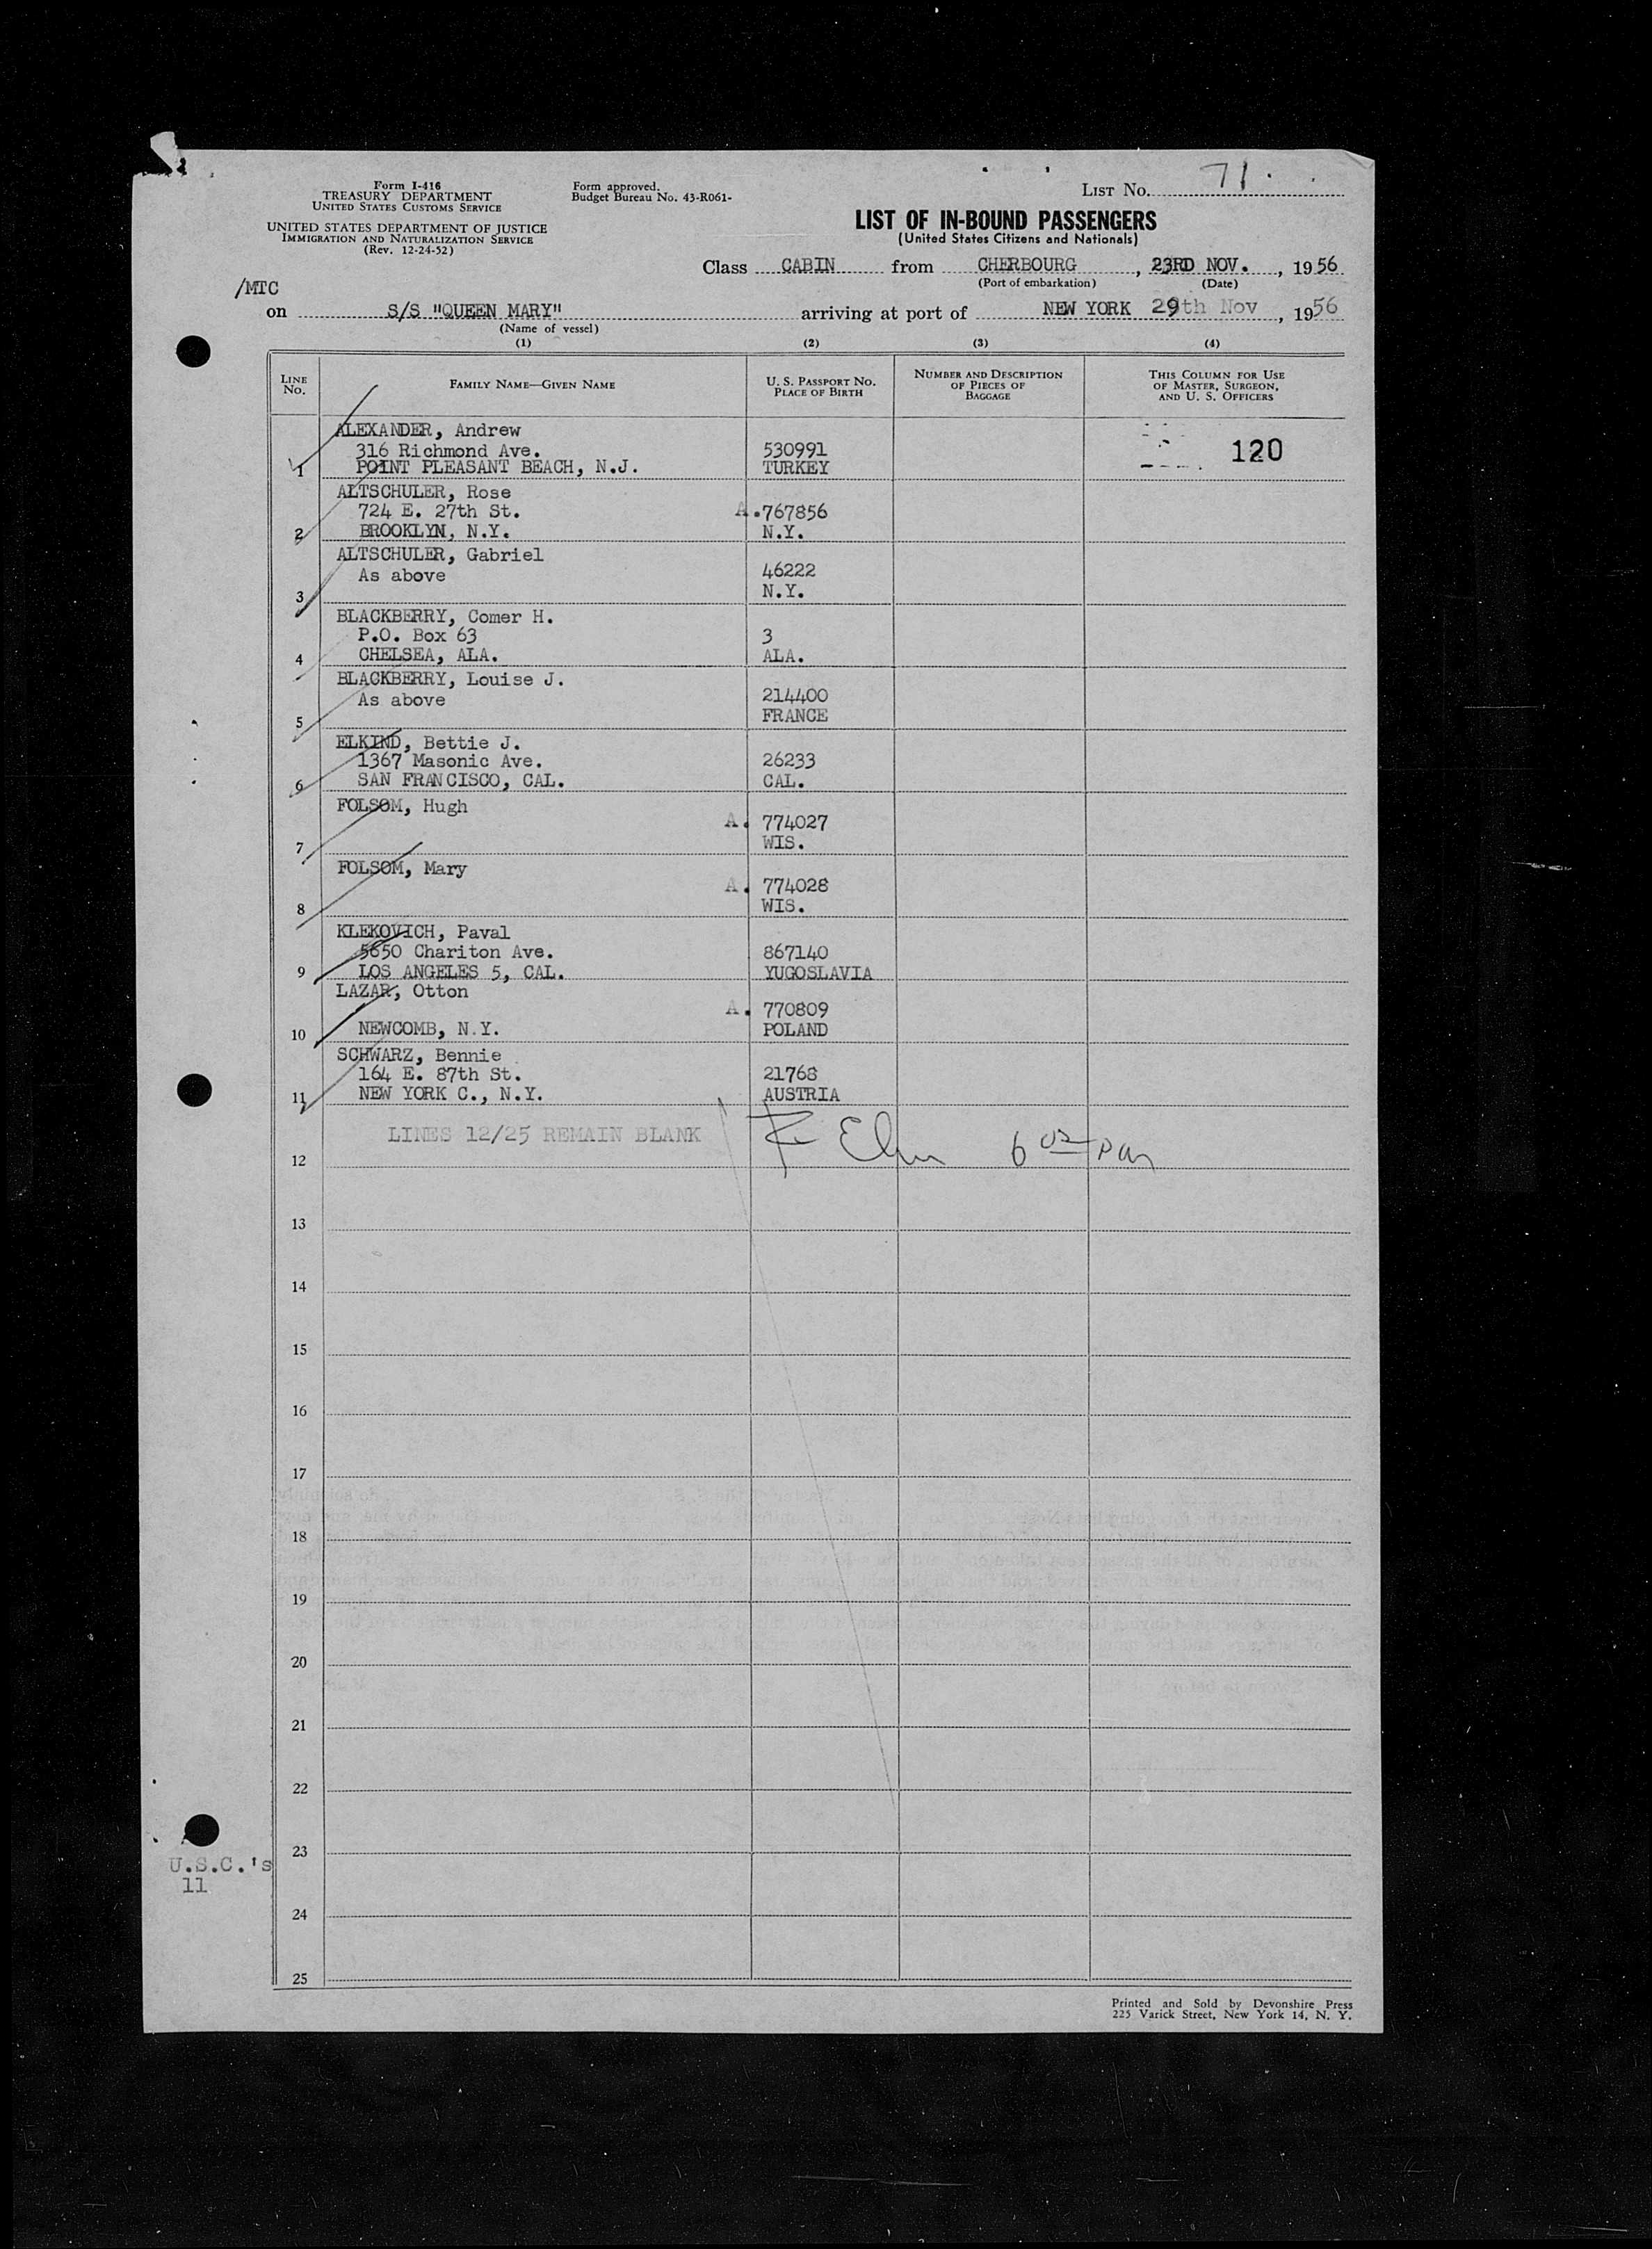 Form I-416
TREASURY DEPARTMENT
UNITED STATES CUSTOMS SERVICE
UNITED STATES DEPARTMENT OF JUSTICE
IMMIGRATION AND NATURALIZATION SERVICE
(Rev. 12-24-52)
Form approved.
Budget Bureau No. 43-R061-
LIST No. 71.
LIST OF IN-BOUND PASSENGERS
(United States Citizens and Nationals)
Class CABIN from CHERBOURG, 23RD NOV., 1956
(Port of embarkation) (Date)
/MTC
on S/S "QUEEN MARY" arriving at port of NEW YORK 29th Nov, 1956
(Name of vessel)
(1) (2) (3) (4)
LINE No.
FAMILY NAME—GIVEN NAME
U. S. PASSPORT NO.
PLACE OF BIRTH
NUMBER AND DESCRIPTION
OF PIECES OF
BAGGAGE
THIS COLUMN FOR USE
OF MASTER, SURGEON,
AND U. S. OFFICERS
ALEXANDER, Andrew
316 Richmond Ave. 530991 120
1 POINT PLEASANT BEACH, N.J. TURKEY
ALTSCHULER, Rose
724 E. 27th St. A.767856
2 BROOKLYN, N.Y. N.Y.
ALTSCHULER, Gabriel
As above 46222
3 N.Y.
BLACKBERRY, Comer H.
P.O. Box 63 3
4 CHELSEA, ALA. ALA.
BLACKBERRY, Louise J.
As above 214400
5 FRANCE
ELKIND, Bettie J.
1367 Masonic Ave. 26233
6 SAN FRANCISCO, CAL. CAL.
FOLSOM, Hugh
A. 774027
7 WIS.
FOLSOM, Mary
A. 774028
8 WIS.
KLEKOVICH, Paval
5650 Chariton Ave. 867140
9 LOS ANGELES 5, CAL. YUGOSLAVIA
LAZAR, Otton
A. 770809
10 NEWCOMB, N.Y. POLAND
SCHWARZ, Bennie
164 E. 87th St. 21768
11 NEW YORK C., N.Y. AUSTRIA
LINES 12/25 REMAIN BLANK
12
13
14
15
16
17
18
19
20
21
22
23
U.S.C.'s
11
24
25
Printed and Sold by Devonshire Press
225 Varick Street, New York 14, N. Y.